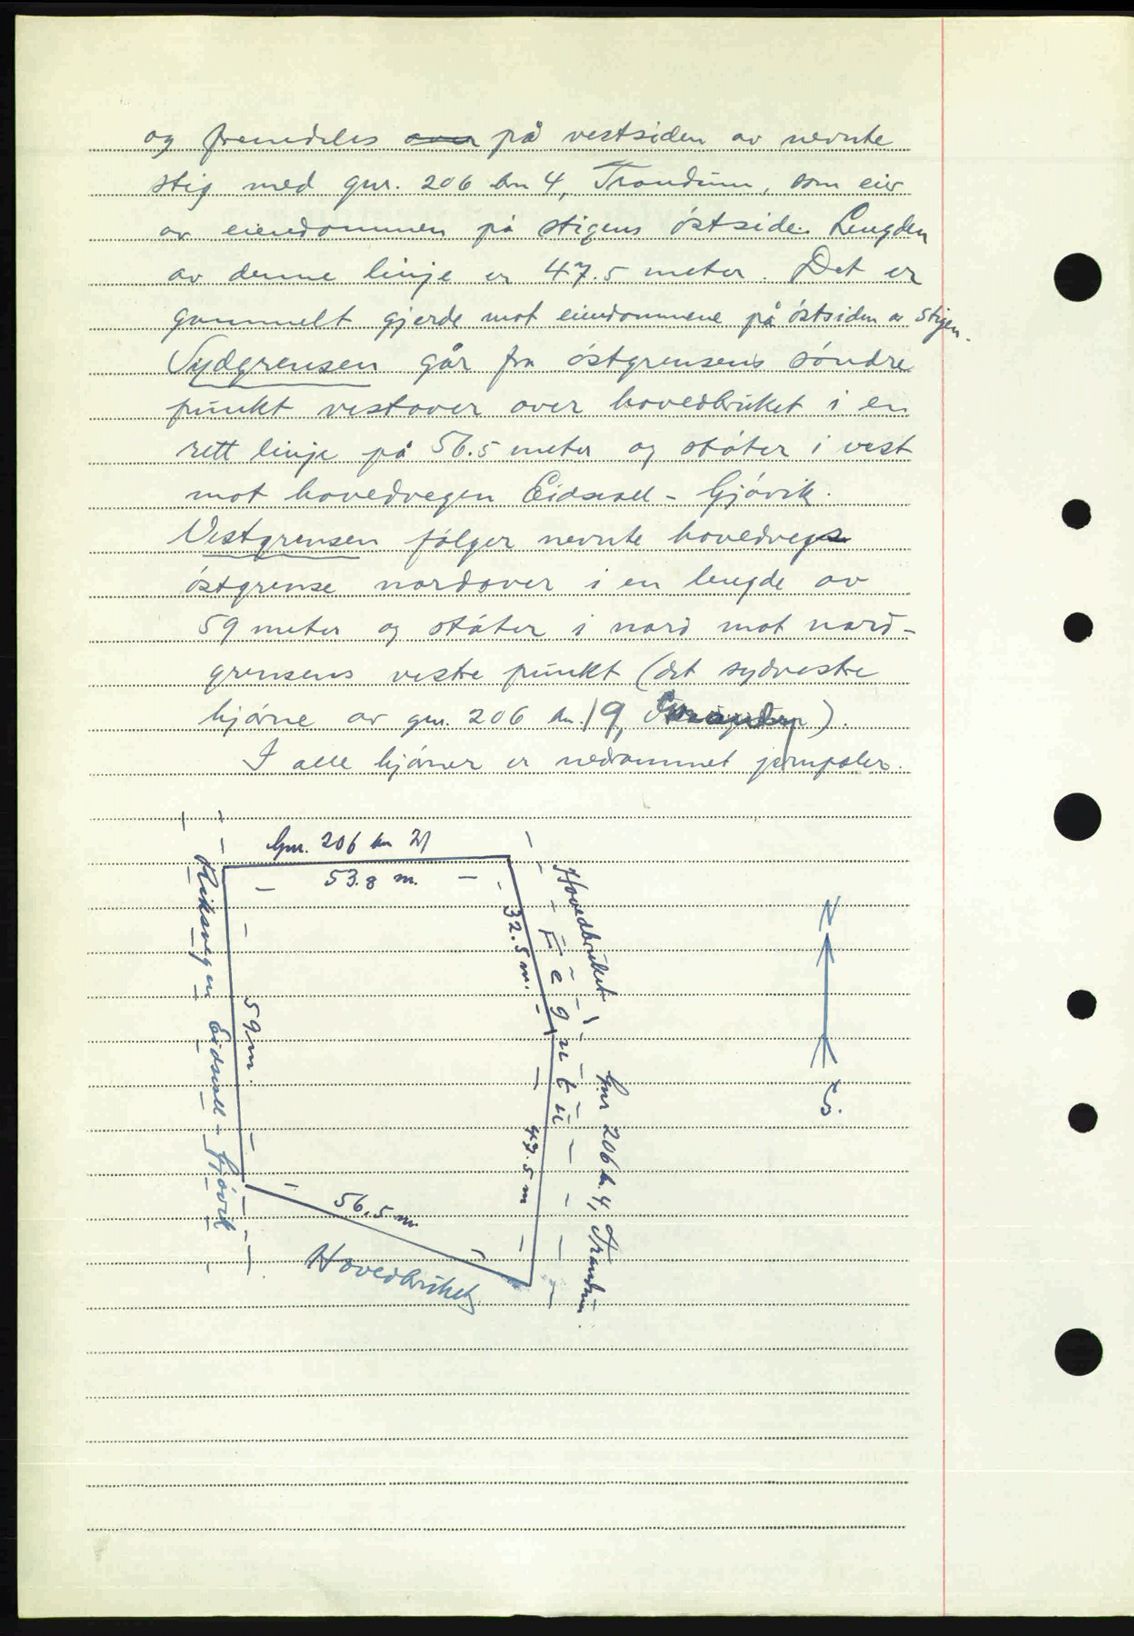 og fremdeles over på vestsiden av nevnte
stig med gnr. 206 bn 4, Trandum, som eier
av eiendommen på stigens östside. Lengden
av denne linje er 47.5 meter. Det er
gammelt gjerde mot eiendommene på östsiden av stigen.
Sydgrensen går fra östgrensens söndre
punkt vestover over hovedbruket i en
rett linje på 56.5 meter og stöter i vest
mot hovedvegen Eidsvoll - Gjövik.
Vestgrensen fölger nevnte hovedvegs
östgrense nordover i en lengde av
59 meter og stöter i nord mot nord-
grensens vestre punkt (det sydvestre
hjörne av gnr. 206 bn. 19, ).
I alle hjörner er nedrammet jernpæler.
Gnr. 206 bn 21
53.8 m.
32.5 m.
Hovedbruket
Riksvegen Eidsvoll - Gjövik
59 m.
47.5 m
Gnr 206 bn. 4, Trandum
56.5 m.
Hovedbruket
N
S.